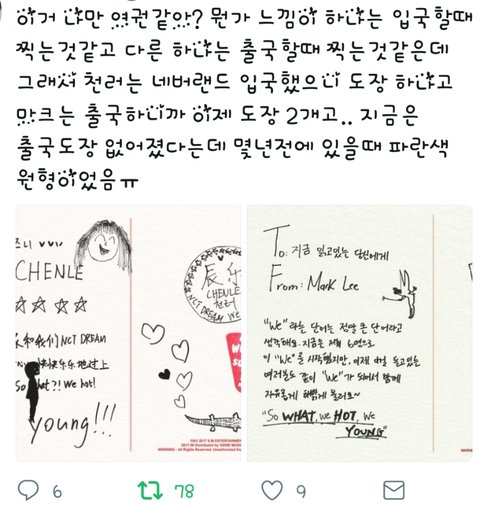 이거 나만 여권같아? 뭔가 느낌이 하나는 입국할때
찍는것같고 다른 하나는 출국할때 찍는것같은데
그래서 천러는 네버랜드 입국했으니 도장 하나고
마크는 출국하니까 이제 도장 2개고.. 지금은
출국도장 없어졌다는데 몇년전에 있을때 파란색
원형이었음ㅠ
즈니
CHENLE
☆ ☆ ☆ ☆
和我们 NCT DREAM
快快乐乐地过上
So hot?! We hot!
young!!!
辰乐
CHENLE
천러
NCT DREAM We
To: 지금 읽고있는 당신에게
From: Mark Lee
"We" 라는 단어는 정말 큰 단어라고
생각해요. 지금은 저희 6명으로
이 "We"를 시작했지만, 이제 이걸 듣고있는
여러분도 같이 "We"가 되어서 함께
자유롭게 해맑게 불러요~
"So WHAT, We HOT, We
YOUNG"
6 78 9